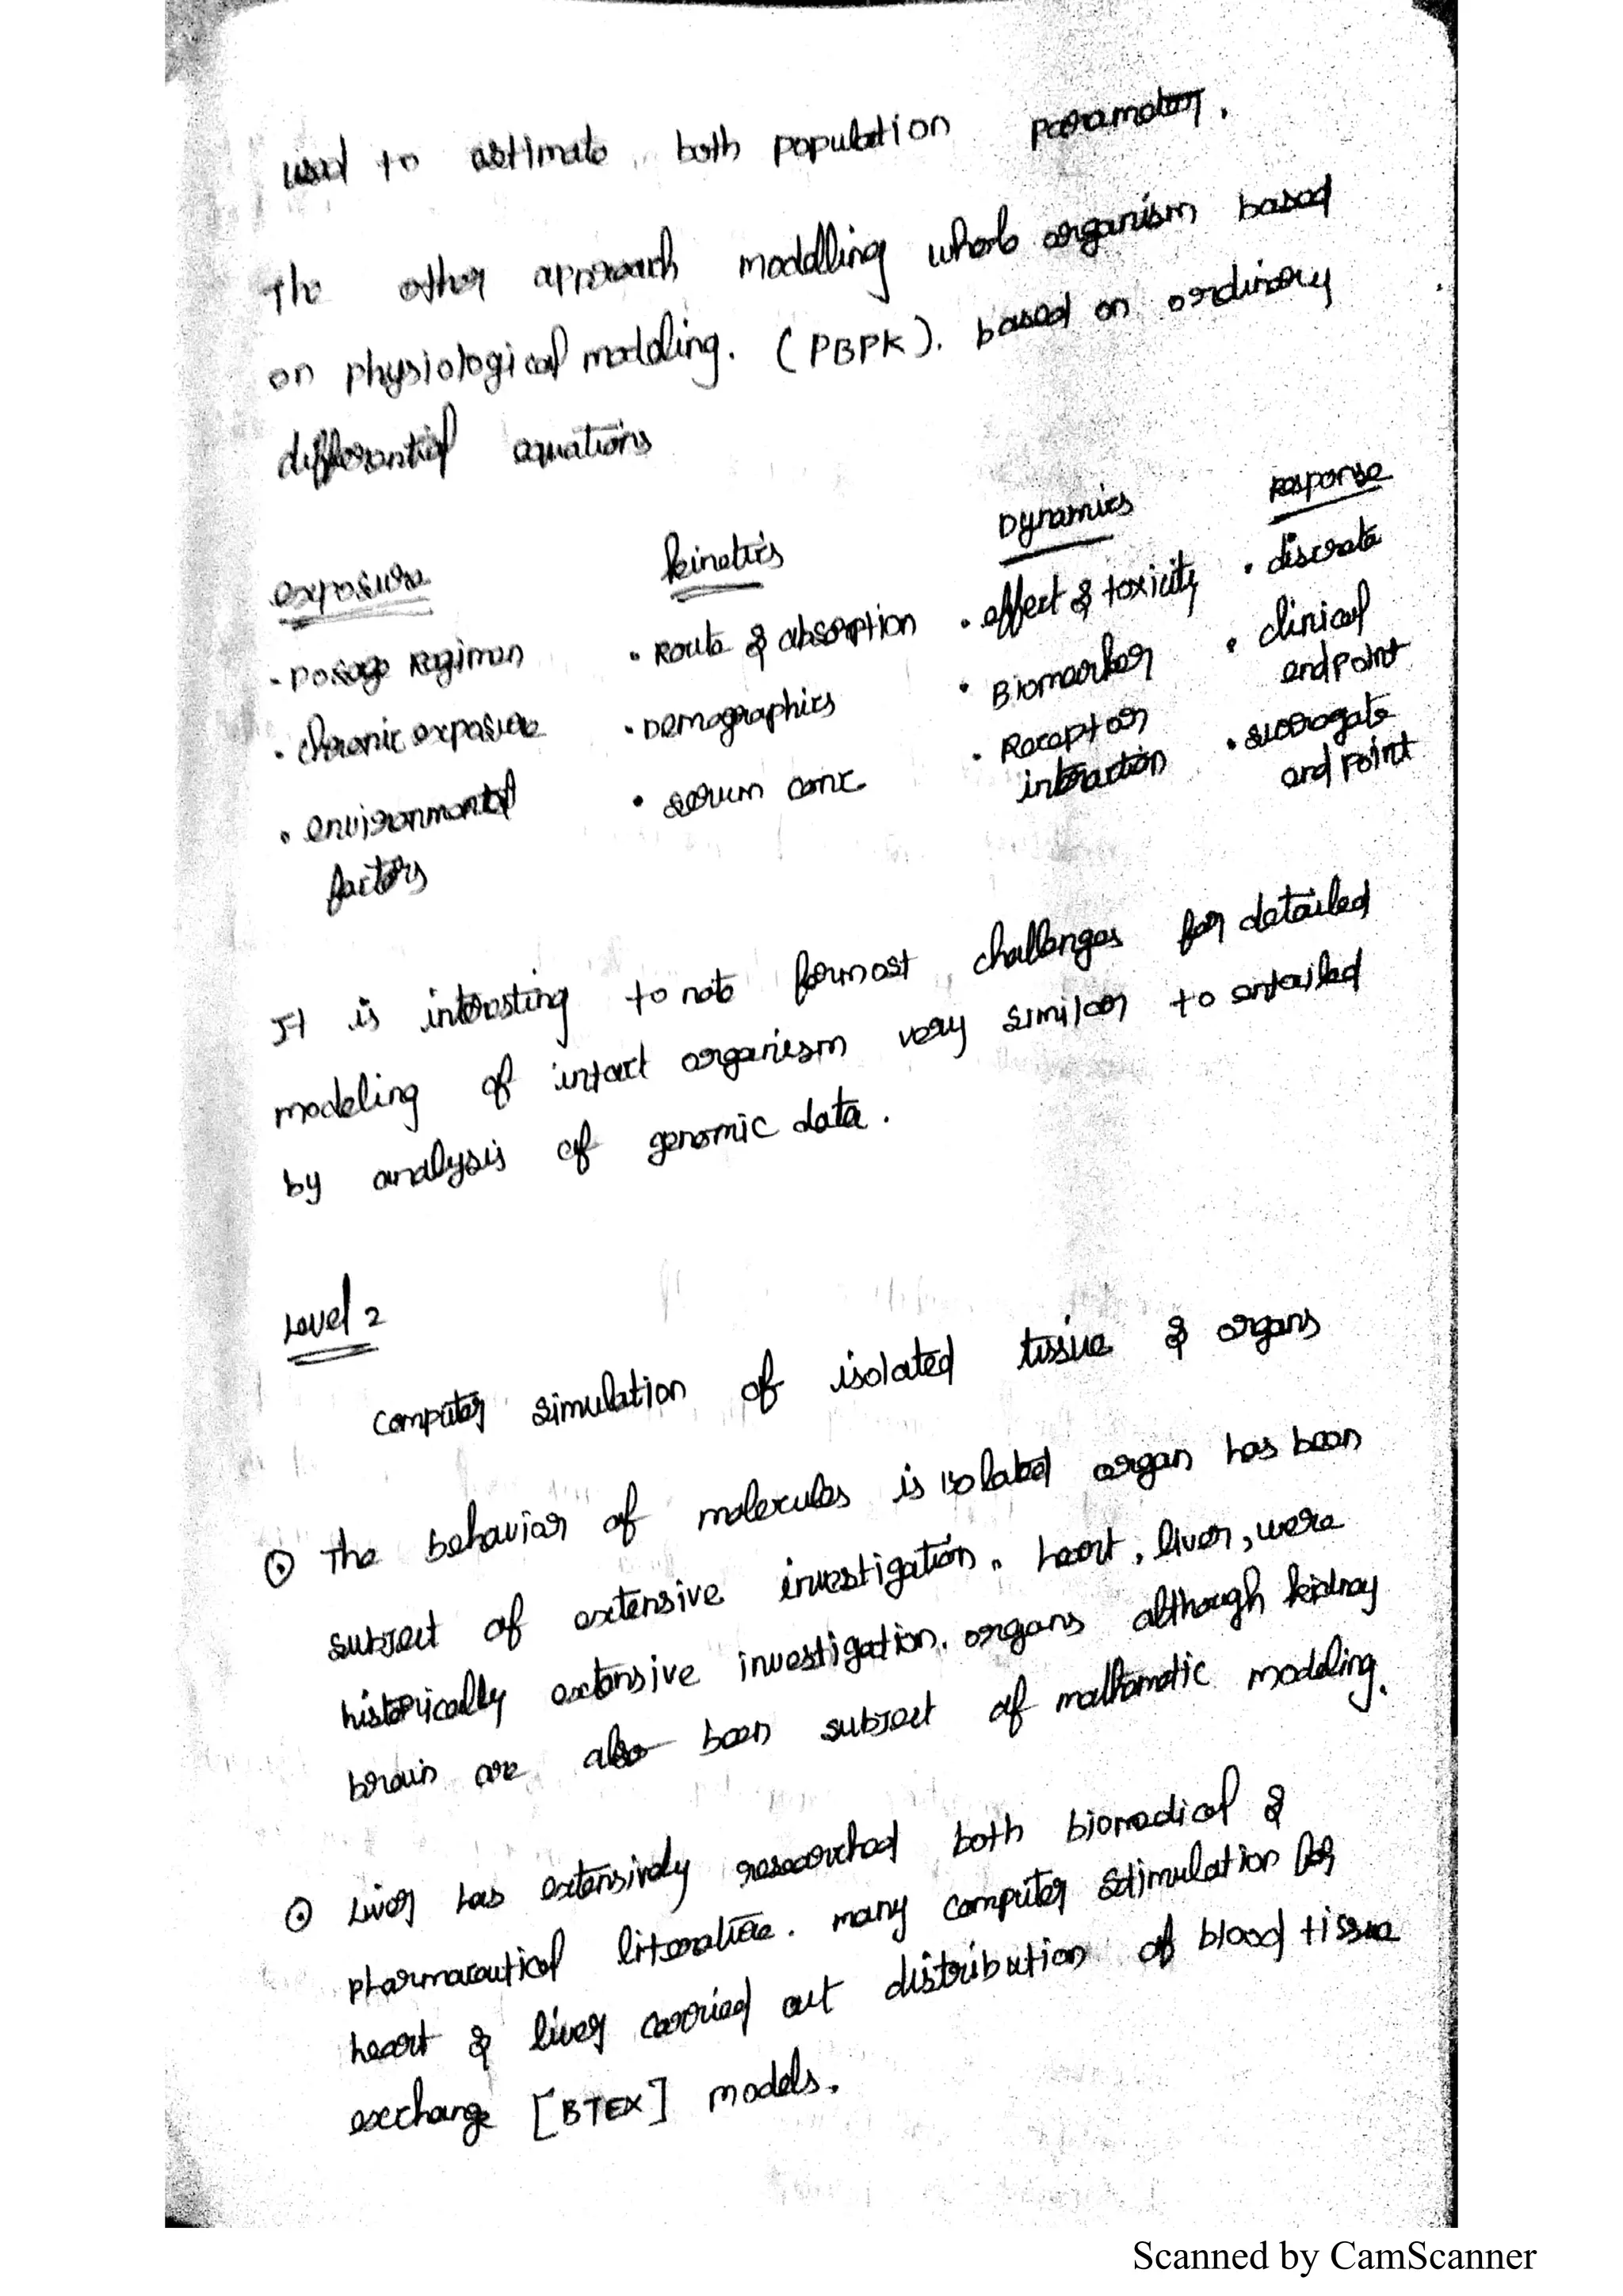 used to estimate both population parameter.
The other approach modelling whole organism based
on physiological modeling. (PBPK). based on ordinary
differential equations
exposure kinetics Dynamics Response
• Dosage Regimen • Route & absorption • effect & toxicity • discrete
• chronic exposure • Demographics • Biomarker • clinical
endpoint
• environmental • serum conc. • Receptor • surrogate
factors interaction end point
It is interesting to note formost challenges for detailed
modeling of intact organism very similar to entailed
by analysis of genomic data.
Level 2
Computer simulation of isolated tissue & organs
⊙ The behavior of molecules is isolated organ has been
subject of extensive investigation. heart, liver, were
historically extensive investigation. organs although kidney
brain are also been subject of mathematic modeling.
⊙ Liver has extensively researched both biomedical &
pharmaceutical literature. many computer stimulation for
heart & liver carried out distribution of blood tissue
exchange [BTEX] models.
Scanned by CamScanner